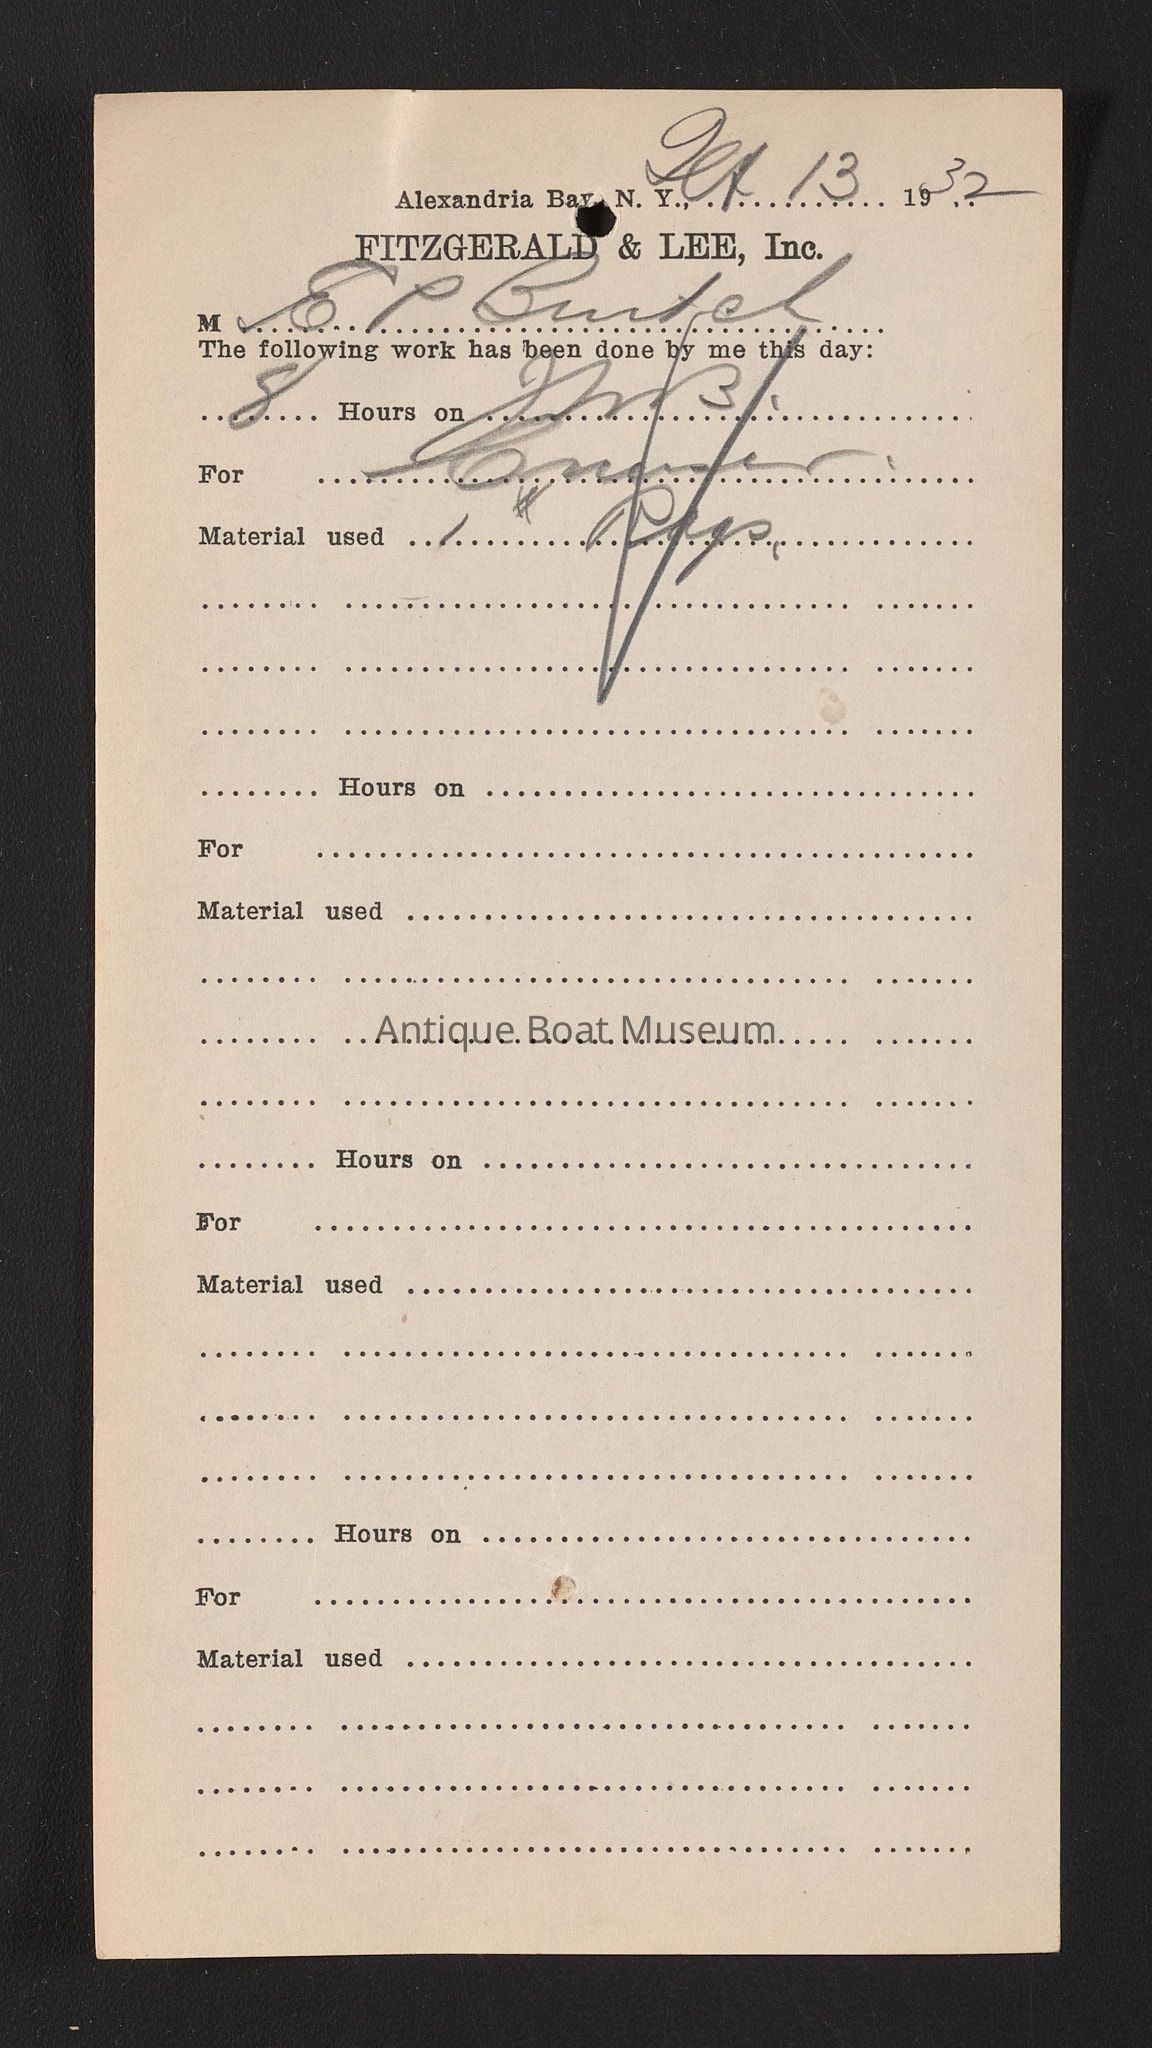 Alexandria Bay, N. Y., ............ 13 1932
FITZGERALD & LEE, Inc.
M E P Burtch
The following work has been done by me this day:
8 Hours on
For
Material used 1 # Rags.
Hours on
For
Material used
Antique Boat Museum
Hours on
For
Material used
Hours on
For
Material used